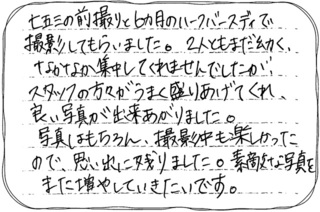 七五三の前撮りと6カ月のハーフバースディで
撮影してもらいました。2人ともまだ幼く、
なかなか集中してくれませんでしたが、
スタッフの方々がうまく盛りあげてくれ、
良い写真が出来あがりました。
写真はもちろん、撮影中も楽しかった
ので、思い出に残りました。素敵な写真を
また増やしていきたいです。